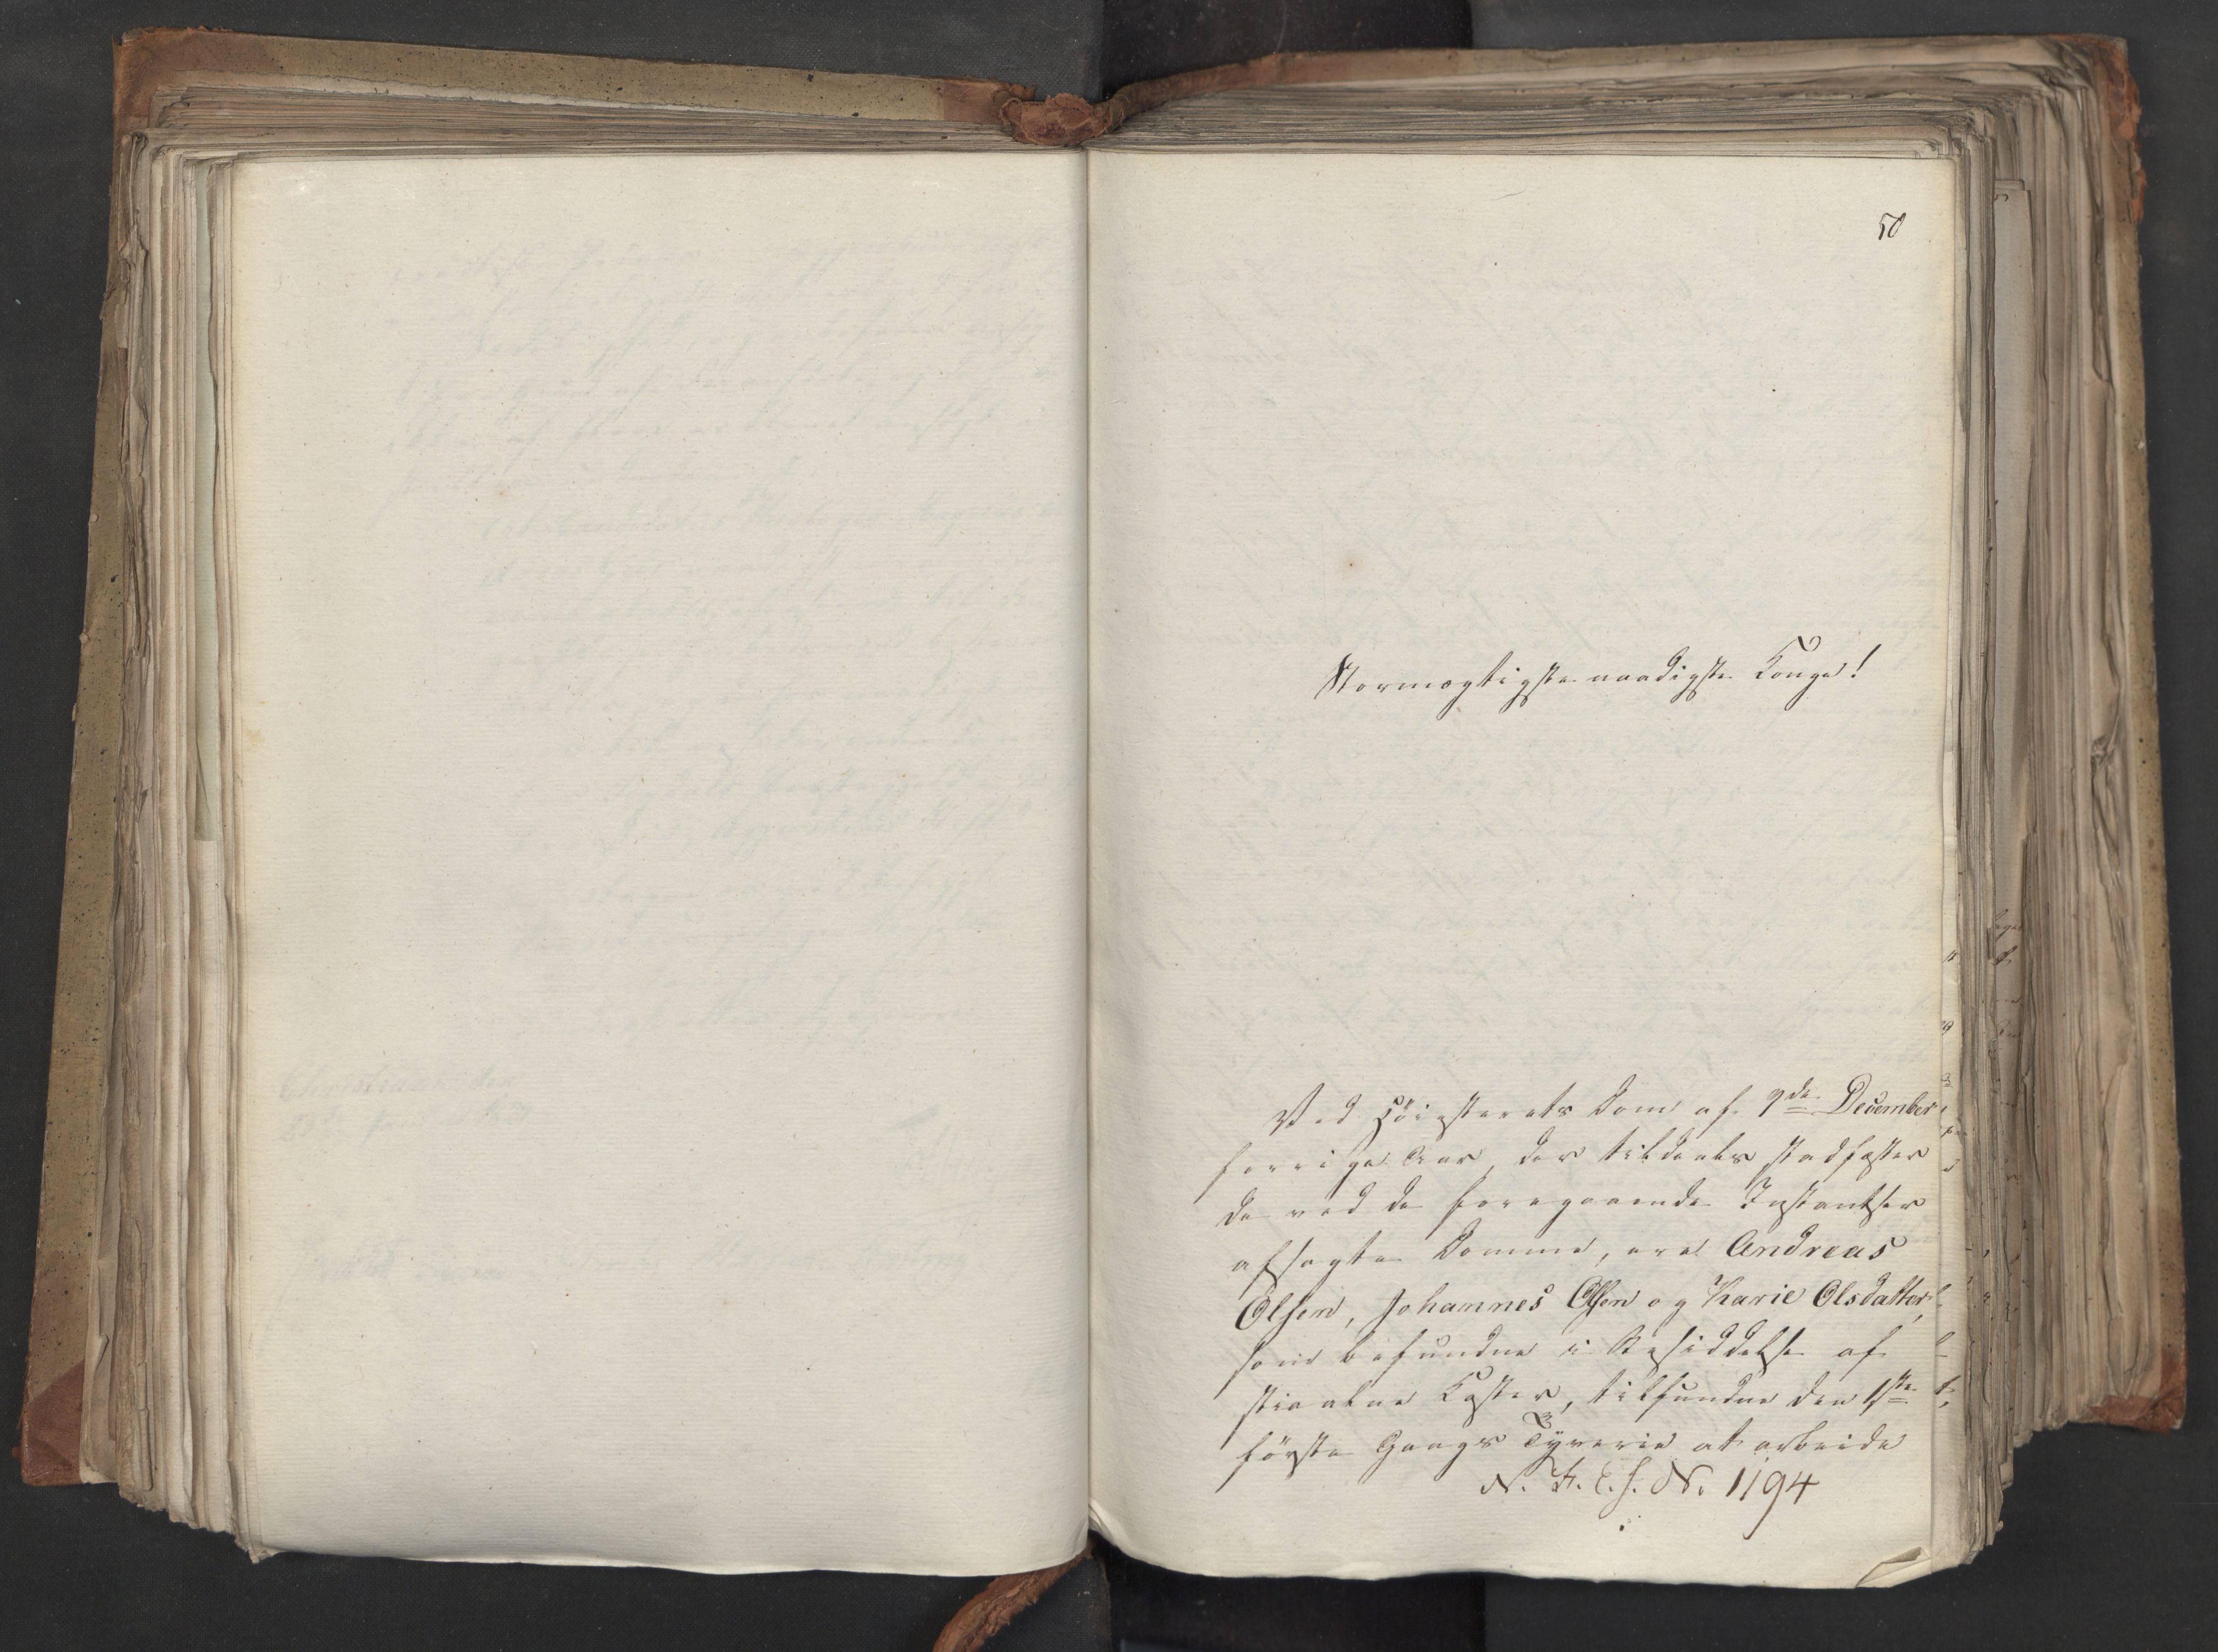 50
Stormægtigste naadigste Konge!
Ved Høiesterets Dom af 9de December
forrige Aar, der tildeels stadfæster
de ved de foregaaende Instantser
afsagte Domme, ere Andreas
Olsen, Johannes Olsen og Karie Olsdatter,
som befundne i Besiddelse af
stiaalne Koster, tilfundne den 1ste
første Gangs Tyverie at arbeide
N. F. C. J. No. 1194